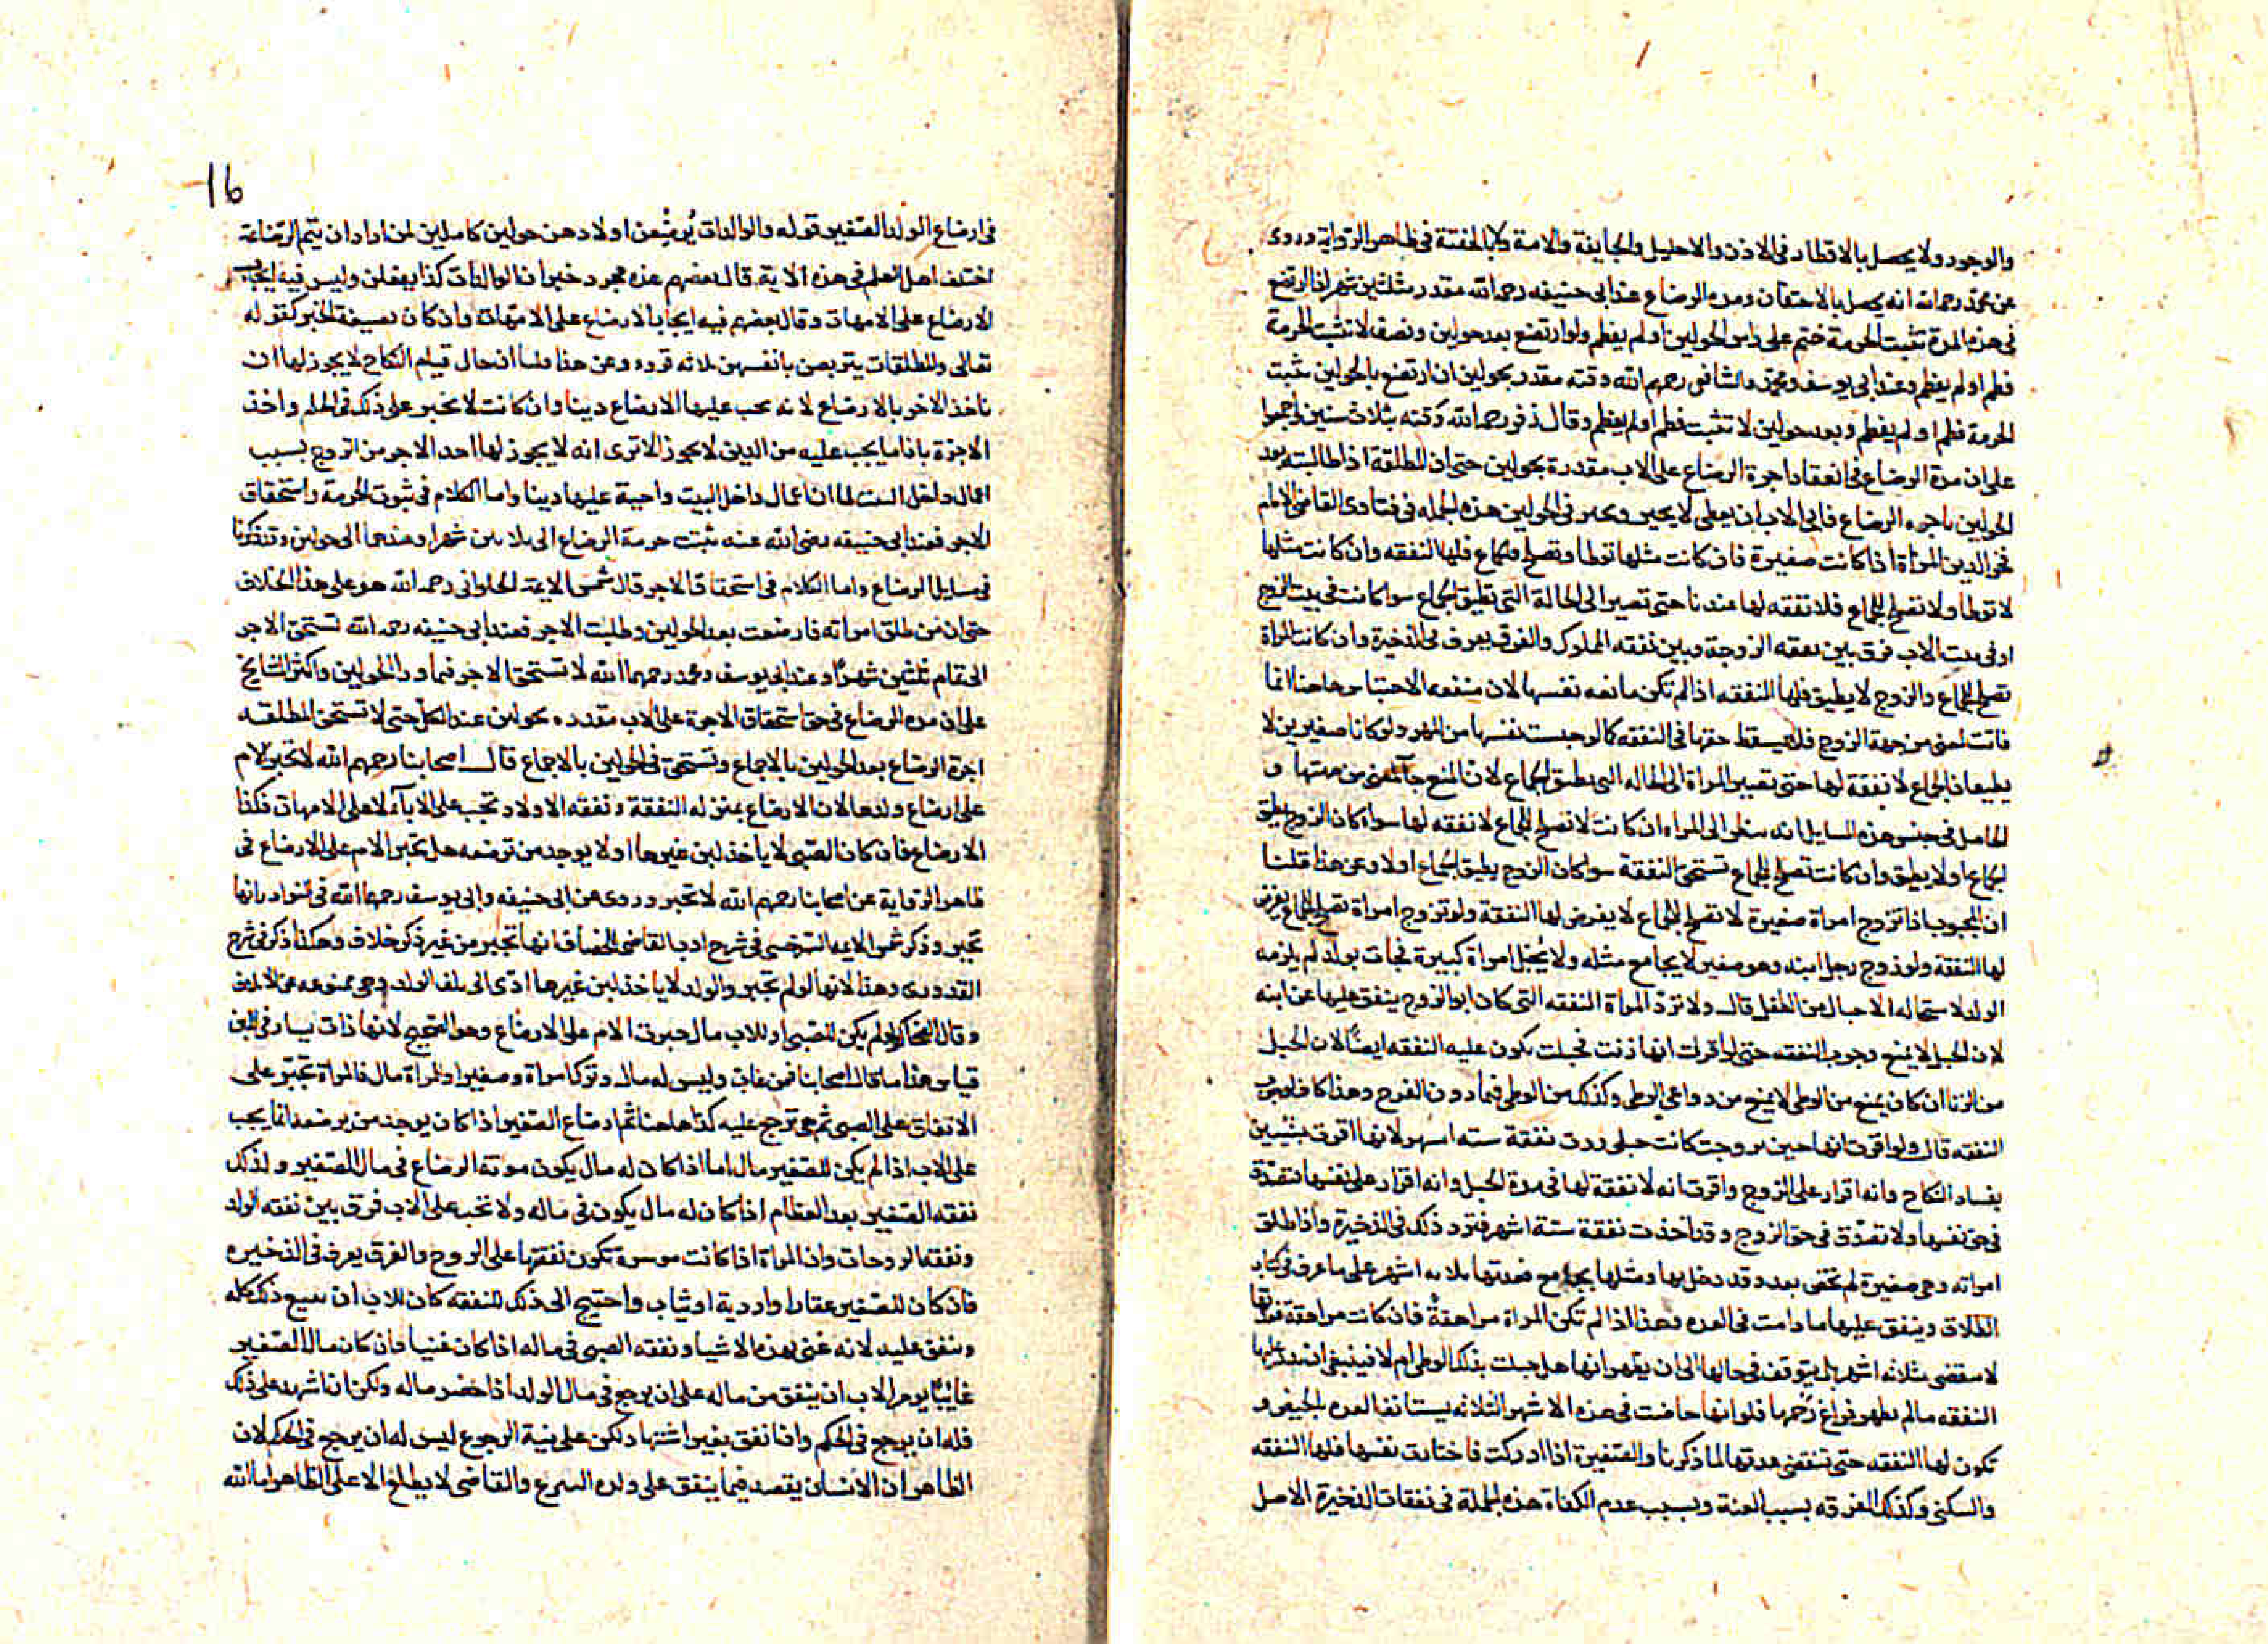 والوجور ولا يحصل بالاقطار فى الاذن والاحليل والجايفة والامة ولا بالحقنة فى ظاهر الرواية وروى
عن محمد رحمه الله انه يحصل بالاحتقان ومدة الرضاع عند ابى حنيفه رحمه الله مقدر بثلثين شهرا اذا ارتضع
فى هذه المدة تثبت الحرمة ختم على راس الحولين او لم يفطم ولو ارتضع بعد حولين ونصف لا تثبت الحرمة
فطم او لم يفطم وعند ابى يوسف ومحمد والشافعى رحمهم الله وقته مقدر بحولين ان ارتضع بالحولين تثبت
الحرمة فطم او لم يفطم وبعد حولين لا تثبت فطم او لم يفطم وقال زفر رحمه الله وقته بثلاث سنين واجمعوا
على ان مدة الرضاع فى انعقاد اجرة الرضاع على الاب مقدرة بحولين حتى ان المطلقة اذا طالبته بعد
الحولين باجره الرضاع فابى الاب ان يعطى لا يجبر ويجبر فى الحولين هذه الجمله فى فتاوى القاضى الامام
فخر الدين المراة اذا كانت صغيرة فان كانت مثلها توطا وتصلح للجماع فلها النفقه وان كانت مثلها
لا توطا ولا تصلح للجماع فلا نفقه لها عندنا حتى تصير الى الحالة التى تطيق الجماع سوا كانت فى بيت الزوج
او فى بيت الاب فرق بين نفقه الزوجة وبين نفقه المملوك والفرق يعرف فى الذخيرة وان كانت المراة
تصلح للجماع والزوج لا يطيق فلها النفقه اذا لم تكن مانعه نفسها لان منفعه الاحتباس هاهنا انما
فاتت لمعنى من جهة الزوج فلا يسقط حقها فى النفقه كما لو حبست نفسها من المهر ولو كانا صغيرين لا
يطيقان الجماع لا نفقة لها حتى تصير المراة الى الحاله التى تطيق الجماع لان المنع جآ لمعنى من جهتها و
الحاصل فى جنس هذه المسايل انه ينظر الى المراه ان كانت لا تصلح للجماع لا نفقه لها سوا كان الزوج يطيق
الجماع او لا يطيق وان كانت تصلح للجماع تستحق النفقة سوا كان الزوج يطيق الجماع او لا وعن هذا قلنا
ان المجبوب اذا تزوج امراة صغيرة لا تصلح للجماع لا يفرض لها النفقة ولو تزوج امراة تصلح للجماع يفرض
لها النفقة ولو زوج رجل ابنه وهو صغير لا يجامع مثله ولا يُحبل امراة كبيرة فجات بولد لم يلزمه
الولد لاستحاله الاحبال من الطفل قال ولا ترد المراة النفقه التى كان ابو الزوج ينفق عليها عن ابنه
لان الحبل لا يمنع وجوب النفقه حتى لو اقرت انها زنت فحبلت تكون عليه النفقه ايضًا لان الحبل
من الزنا ان كان يمنع من الوطى لا يمنع من دواعى الوطى وكذلك من الوطى فيما دون الفرج وهذا كاف لوجوب
النفقه قال ولو اقرت انها حين تزوجت كانت حبلى ردت نفقة سته اشهر لانها اقرت بشيين
بفساد النكاح وانه اقرار على الزوج واقرت انه لا نفقة لها فى مدة الحبل وانه اقرار على نفسها فتصدق
فى حق نفسها ولا تصدق فى حق الزوج وقد اخذت نفقة ستة اشهر فترد ذلك فى الذخيرة واذا طلق
امراته وهى صغيرة لم تحض بعد وقد دخل بها ومثلها يجامع فعدتها ثلاثه اشهر على ما عرف فى كتاب
الطلاق وينفق عليها ما دامت فى العده وهذا اذا لم تكن المراة مراهقة فان كانت مراهقة فعدتها
لا تنقضى بثلاثه اشهر بل يتوقف فى حالها الى ان يظهر انها هل حبلت بذلك الوطى ام لا فينبغى ان تدر عليها
النفقه ما لم يظهر فراغ رحمها فلو انها حاضت فى هذه الاشهر الثلاثه يستانف العده بالحيض و
تكون لها النفقه حتى تنقضى عدتها لما ذكرنا والصغيرة اذا ادركت فاختارت نفسها فلها النفقه
والسكنى وكذلك الفرقه بسبب العنة وبسبب عدم الكفاة هذه الجملة فى نفقات الذخيرة الاصل
16
فى ارضاع الولد الصغير قوله والوالدات يُرضِعن اولادهن حولين كاملين لمن اراد ان يتم الرضاعة
اختلف اهل العلم فى هذه الاية قال بعضهم هذه مجرد خبر ان الوالدات كذا يفعلن وليس فيه ايجاب
الارضاع على الامهات وقال بعضهم فيه ايجاب الارضاع على الامهات وان كان بصيغة الخبر كقوله
تعالى والمطلقات يتربصن بانفسهن ثلاثه قروء وعن هذا قلنا ان حال قيام النكاح لا يجوز لها ان
تاخذ الاجر بالارضاع لانه يجب عليها الارضاع دينا وان كانت لا تجبر على ذلك فى الحكم واخذ
الاجرة باذا ما يجب عليه من الدين لا يجوز الا ترى انه لا يجوز لها اخذ الاجر من الزوج بسبب
اعمال داخل البيت لما ان اعمال داخل البيت واجبة عليها دينا واما الكلام فى ثبوت الحرمة واستحقاق
الاجر فعند ابى حنيفه رضى الله عنه تثبت حرمة الرضاع الى ثلاثين شهرا وعندهما الى حولين وقد ذكرنا
فى مسايل الرضاع واما الكلام فى استحقاق الاجر قال شمس الايمة الحلوانى رحمه الله هو على هذا الخلاف
حتى ان من طلق امراته فارضعت بعد الحولين وطلبت الاجر فعند ابى حنيفه رحمه الله تستحق الاجر
الى تمام ثلثين شهرًا وعند ابى يوسف ومحمد رحمهما الله لا تستحق الاجر فيما ورا الحولين واكثر المشايخ
على ان مدة الرضاع فى حق استحقاق الاجرة على الاب مقدره بحولين عند الكل حتى لا تستحق المطلقه
اجرة الرضاع بعد الحولين بالاجماع وتستحق فى الحولين بالاجماع قال اصحابنا رحمهم الله لا تجبر الام
على ارضاع ولدها لان الارضاع بمنزله النفقة ونفقه الاولاد تجب على الابآء لا على الامهات فكذا
الارضاع فان كان الصبى لا ياخذ لبن غيرها او لا يوجد من ترضعه هل تجبر الام على الارضاع فى
ظاهر الرواية عن اصحابنا رحمهم الله لا تجبر وروى عن ابى حنيفه وابى يوسف رحمهما الله فى النوادر انها
تجبر وذكر شمس الايمه السرخسى فى شرح ادب القاضى للخصاف انها تجبر من غير ذكر خلاف وهكذا ذكر فى شرح
القدورى وهذا لانها لو لم تجبر والولد لا ياخذ لبن غيرها ادى الى تلف الولد وهى ممنوعه عن الاتلاف
وقال الخصاف ان لم يكن للصبى او للاب مال جبرت الام على الارضاع وهو الصحيح لانها ذات يسار فى اللبن
قياس هذا ما قال اصحابنا فمن غاب وليس له مال وترك امراة وصغيرا وللمراة مال فالمراة تجبر على
الانفاق على الصبى ثم هى ترجع عليه كذا هاهنا ثم ارضاع الصغير اذا كان يوجد من يرضعه انما يجب
على الاب اذا لم يكن للصغير مال اما اذا كان له مال يكون مونة الرضاع فى مال الصغير ولذلك
نفقه الصغير بعد الفطام اذا كان له مال يكون فى ماله ولا تجب على الاب فرق بين نفقه الولد
ونفقه الزوجات وان المراة اذا كانت موسرة تكون نفقتها على الزوج والفرق يعرف فى الذخيره
فان كان للصغير عقار او اردية او ثياب واحتيج الى ذلك للنفقه كان للاب ان يبيع ذلك كله
وينفق عليه لانه غنى بهذه الاشيا ونفقه الصبى فى ماله اذا كان غنيا وان كان مال الصغير
غائبًا يومر الاب ان ينفق من ماله على ان يرجع فى مال الولد اذا حضر ماله ولكن ان اشهد على ذلك
فله ان يرجع فى الحكم وان انفق بغير اشهاد لكن على نية الرجوع ليس له ان يرجع فى الحكم لان
الظاهر ان الانسان يقصد فيما ينفق على ولده التبرع والقاضى لا يطلع الا على الظاهر اما الله